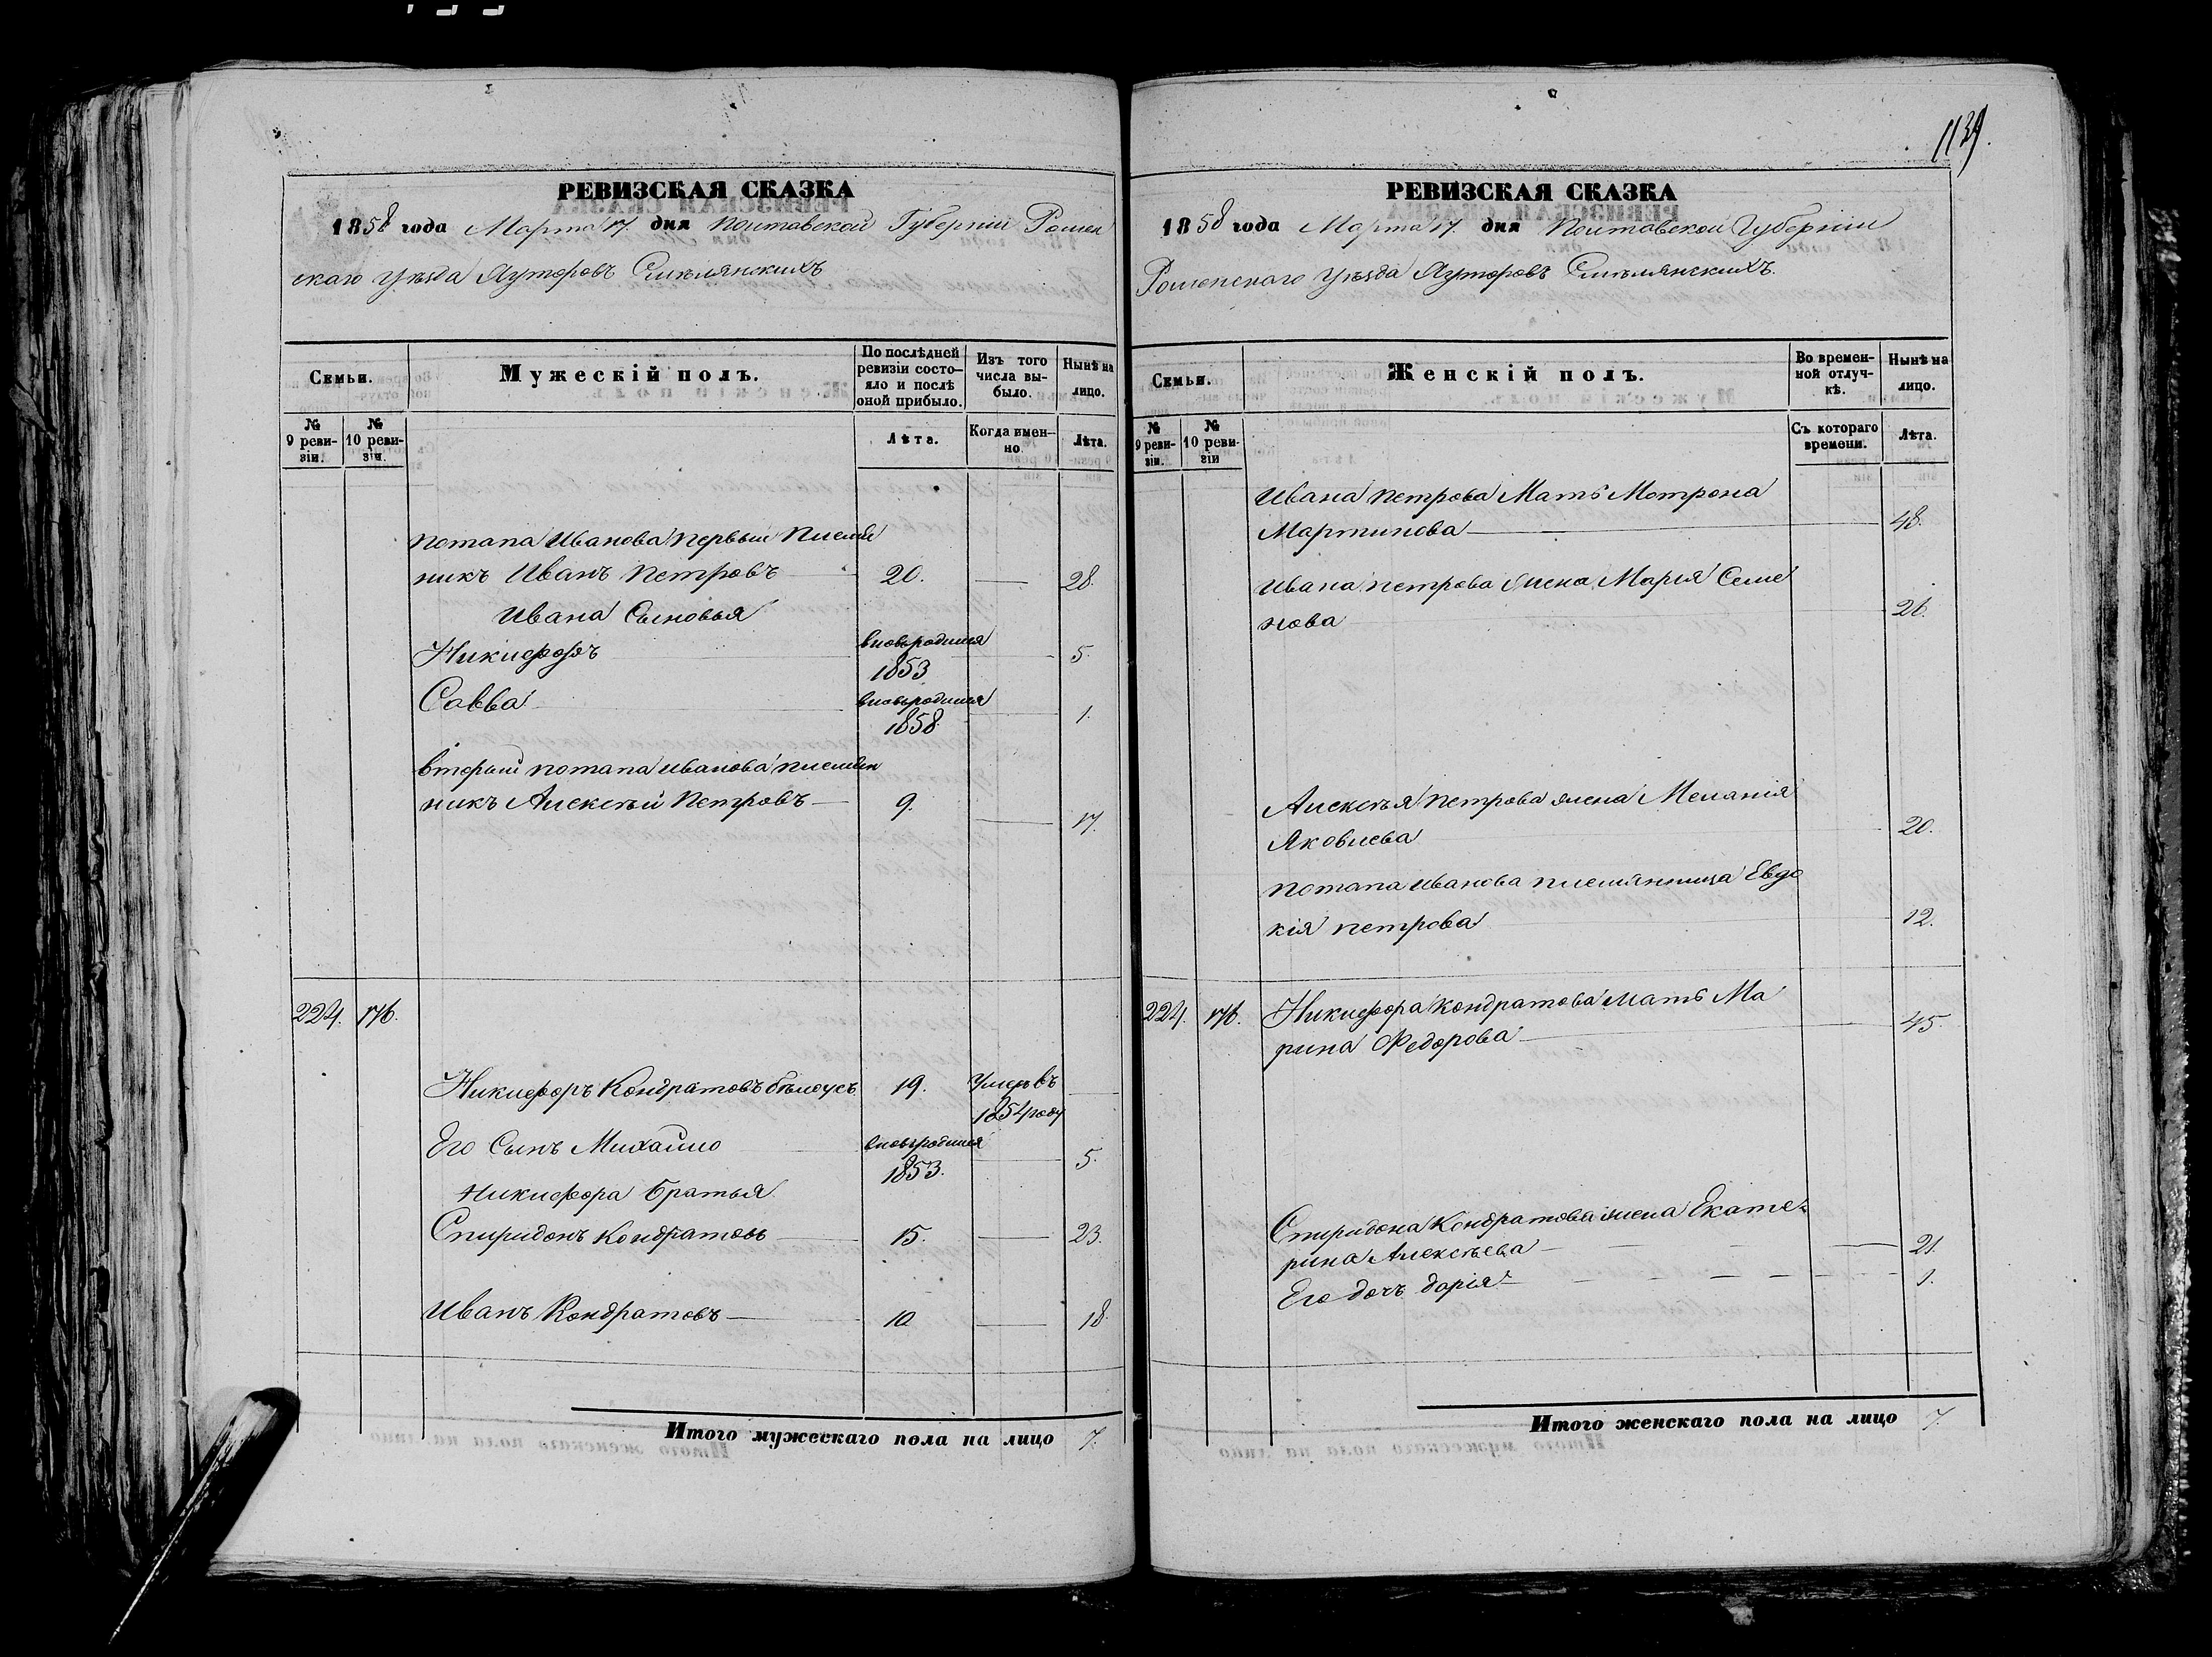 1139.
РЕВИЗСКАЯ СКАЗКА
1858 года Марта 17. дня Полтавской Губерніи Ромен
скаго Уѣзда Хуторовъ Смѣлянскихъ
Семьи.
Мужескій полъ.
По послѣдней ревизіи состо-
яло и послѣ оной прибыло.
Изъ того числа вы-
было.
Нынѣ на лицо.
№ 9 реви-
зіи.
№ 10 реви-
зіи.
Лѣта.
Когда имен-
но
Лѣта.
Потапа Иванова первый племян
никъ Иванъ Петровъ 20. 28.
Ивана Сыновья
Никифоръ вновьродился 1853 5.
Савва вновьродился 1858. 1.
вторый Потапа Иванова племян
никъ Алексѣй Петровъ 9. 17.
224. 176.
Никифоръ Кондратовъ Бѣлоусъ 19. Умеръ въ 1854 году
Его Сынъ Михайло вновьродился 1853. 5.
Никифора братья
Спиридонъ Кондратовъ 15. 23.
Иванъ Кондратовъ 10 18.
Итого мужескаго пола на лицо 7.
РЕВИЗСКАЯ СКАЗКА
1858 года Марта 17. дня Полтавской Губерніи
Роменскаго Уѣзда Хуторовъ Смѣлянскихъ.
Семьи.
Женскій полъ.
Во времен-
ной отлуч-
кѣ.
Нынѣ на лицо.
№ 9 реви-
зіи.
№ 10 реви-
зіи
Съ котораго времени.
Лѣта.
Ивана Петрова Мать Мотрона
Мартинова 48.
Ивана Петрова жена Марія Семе
нова 26.
Алексѣя Петрова жена Меланія
Яковлева 20.
Потапа Иванова племянница Евдо
кія Петрова 12.
224. 176. Никифора Кондратова мать Ма
рина Федорова 45.
Спиридона Кондратова жена Екате-
рина Алексѣева 21.
Его дочь Дарія 1.
Итого женскаго пола на лицо 7.